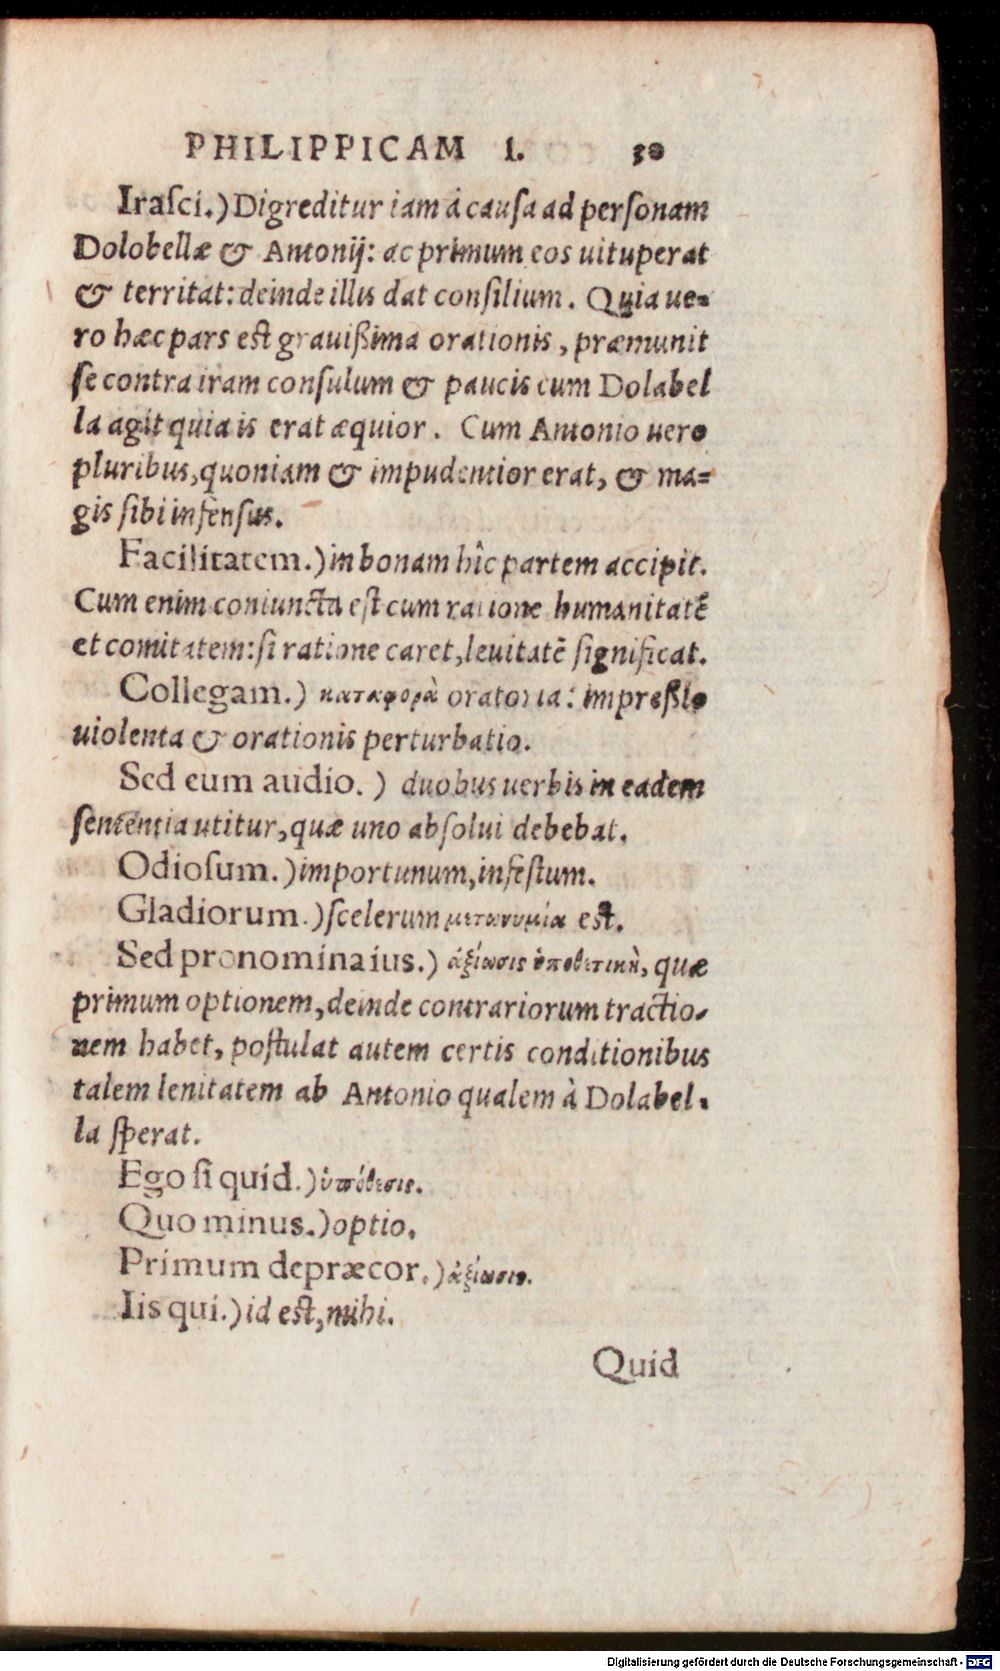 PHILIPPICAM I. 30
Iraſci.) Digreditur iam à cauſa ad perſonam
Dolobellæ & Antonij: ac primum eos uituperat
& territat: deinde illis dat conſilium. Quia ue=
ro hæc pars eſt grauißima orationis, præmunit
ſe contra iram conſulum & paucis cum Dolabel
la agit quia is erat æquior. Cum Antonio uero
pluribus, quoniam & impudentior erat, & ma=
gis ſibi infenſus.
Facilitatem.) in bonam hîc partem accipit.
Cum enim coniuncta eſt cum ratione humanitatē
et comitatem: ſi ratione caret, leuitatē ſignificat.
Collegam.) καταφορὰ oratoria: impreßio
uiolenta & orationis perturbatio.
Sed eum audio.) duobus uerbis in eadem
ſententia utitur, quæ uno abſolui debebat.
Odioſum.) importunum, infeſtum.
Gladiorum.) ſcelerum μετωνυμία eſt.
Sed pro nomina ius.) ἀξίωσις ὑποθετικὴ, quæ
primum optionem, deinde contrariorum tractio-
nem habet, poſtulat autem certis conditionibus
talem lenitatem ab Antonio qualem à Dolabel-
la ſperat.
Ego ſi quid.) ὑπόθεσις.
Quo minus.) optio.
Primum depræcor.) ἀξίωσις.
Iis qui.) id eſt, mihi.
Quid
Digitalisierung gefördert durch die Deutsche Forschungsgemeinschaft - DFG